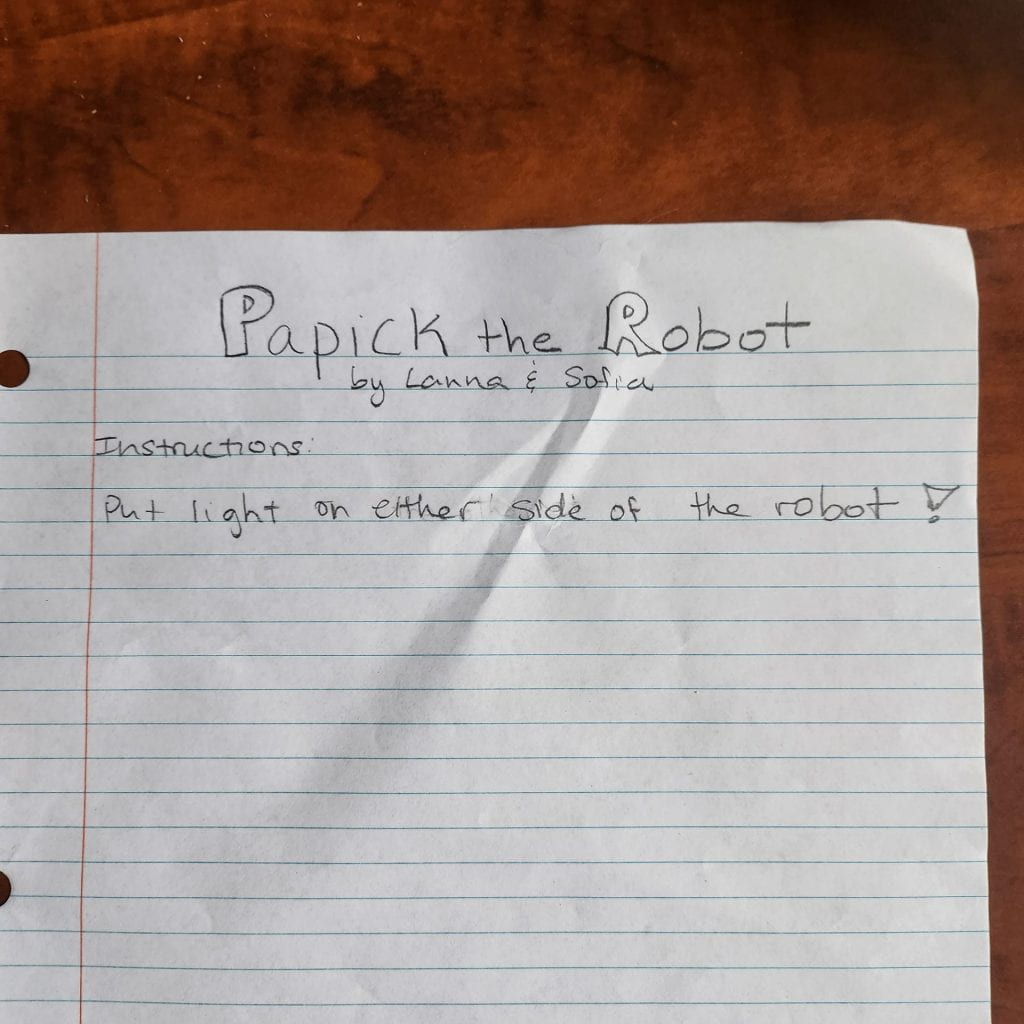 Papick the Robot
by Lanna & Sofia
Instructions:
Put light on either side of the robot!